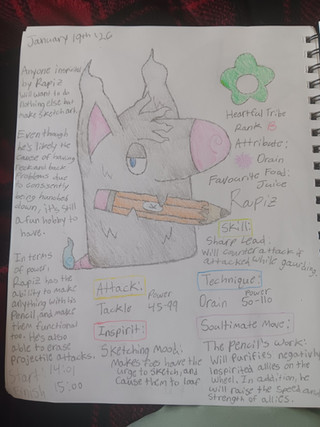 January 19th '26
Anyone inspirited
by Rapiz
will want to do
nothing else but
make sketch art.
Even though
he's likely the
cause of having
neck and back
problems due
to consistently
being hunched
down, it's still
a fun hobby to
have.
In terms
of power,
Rapiz has the
ability to make
anything with his
Pencil and make
them functional
too. He's also
able to erase
projectile attacks.
Start: 14:01
Finish
15:00
Heartful Tribe
Rank B
Attribute:
Drain
Favourite Food:
Juice
Rapiz
Skill:
Sharp Lead:
Will counterattack if
attacked while guarding
Attack:
Power
Tackle 45-99
Technique:
Power
Drain 50-110
Inspirit:
Sketching Mood:
Makes foes have the
urge to sketch, and
cause them to loaf
Soultimate Move:
The Pencil's Work:
Will Purifies negatively
inspirited allies on the
wheel. In addition, he
will raise the speed and
strength of allies.